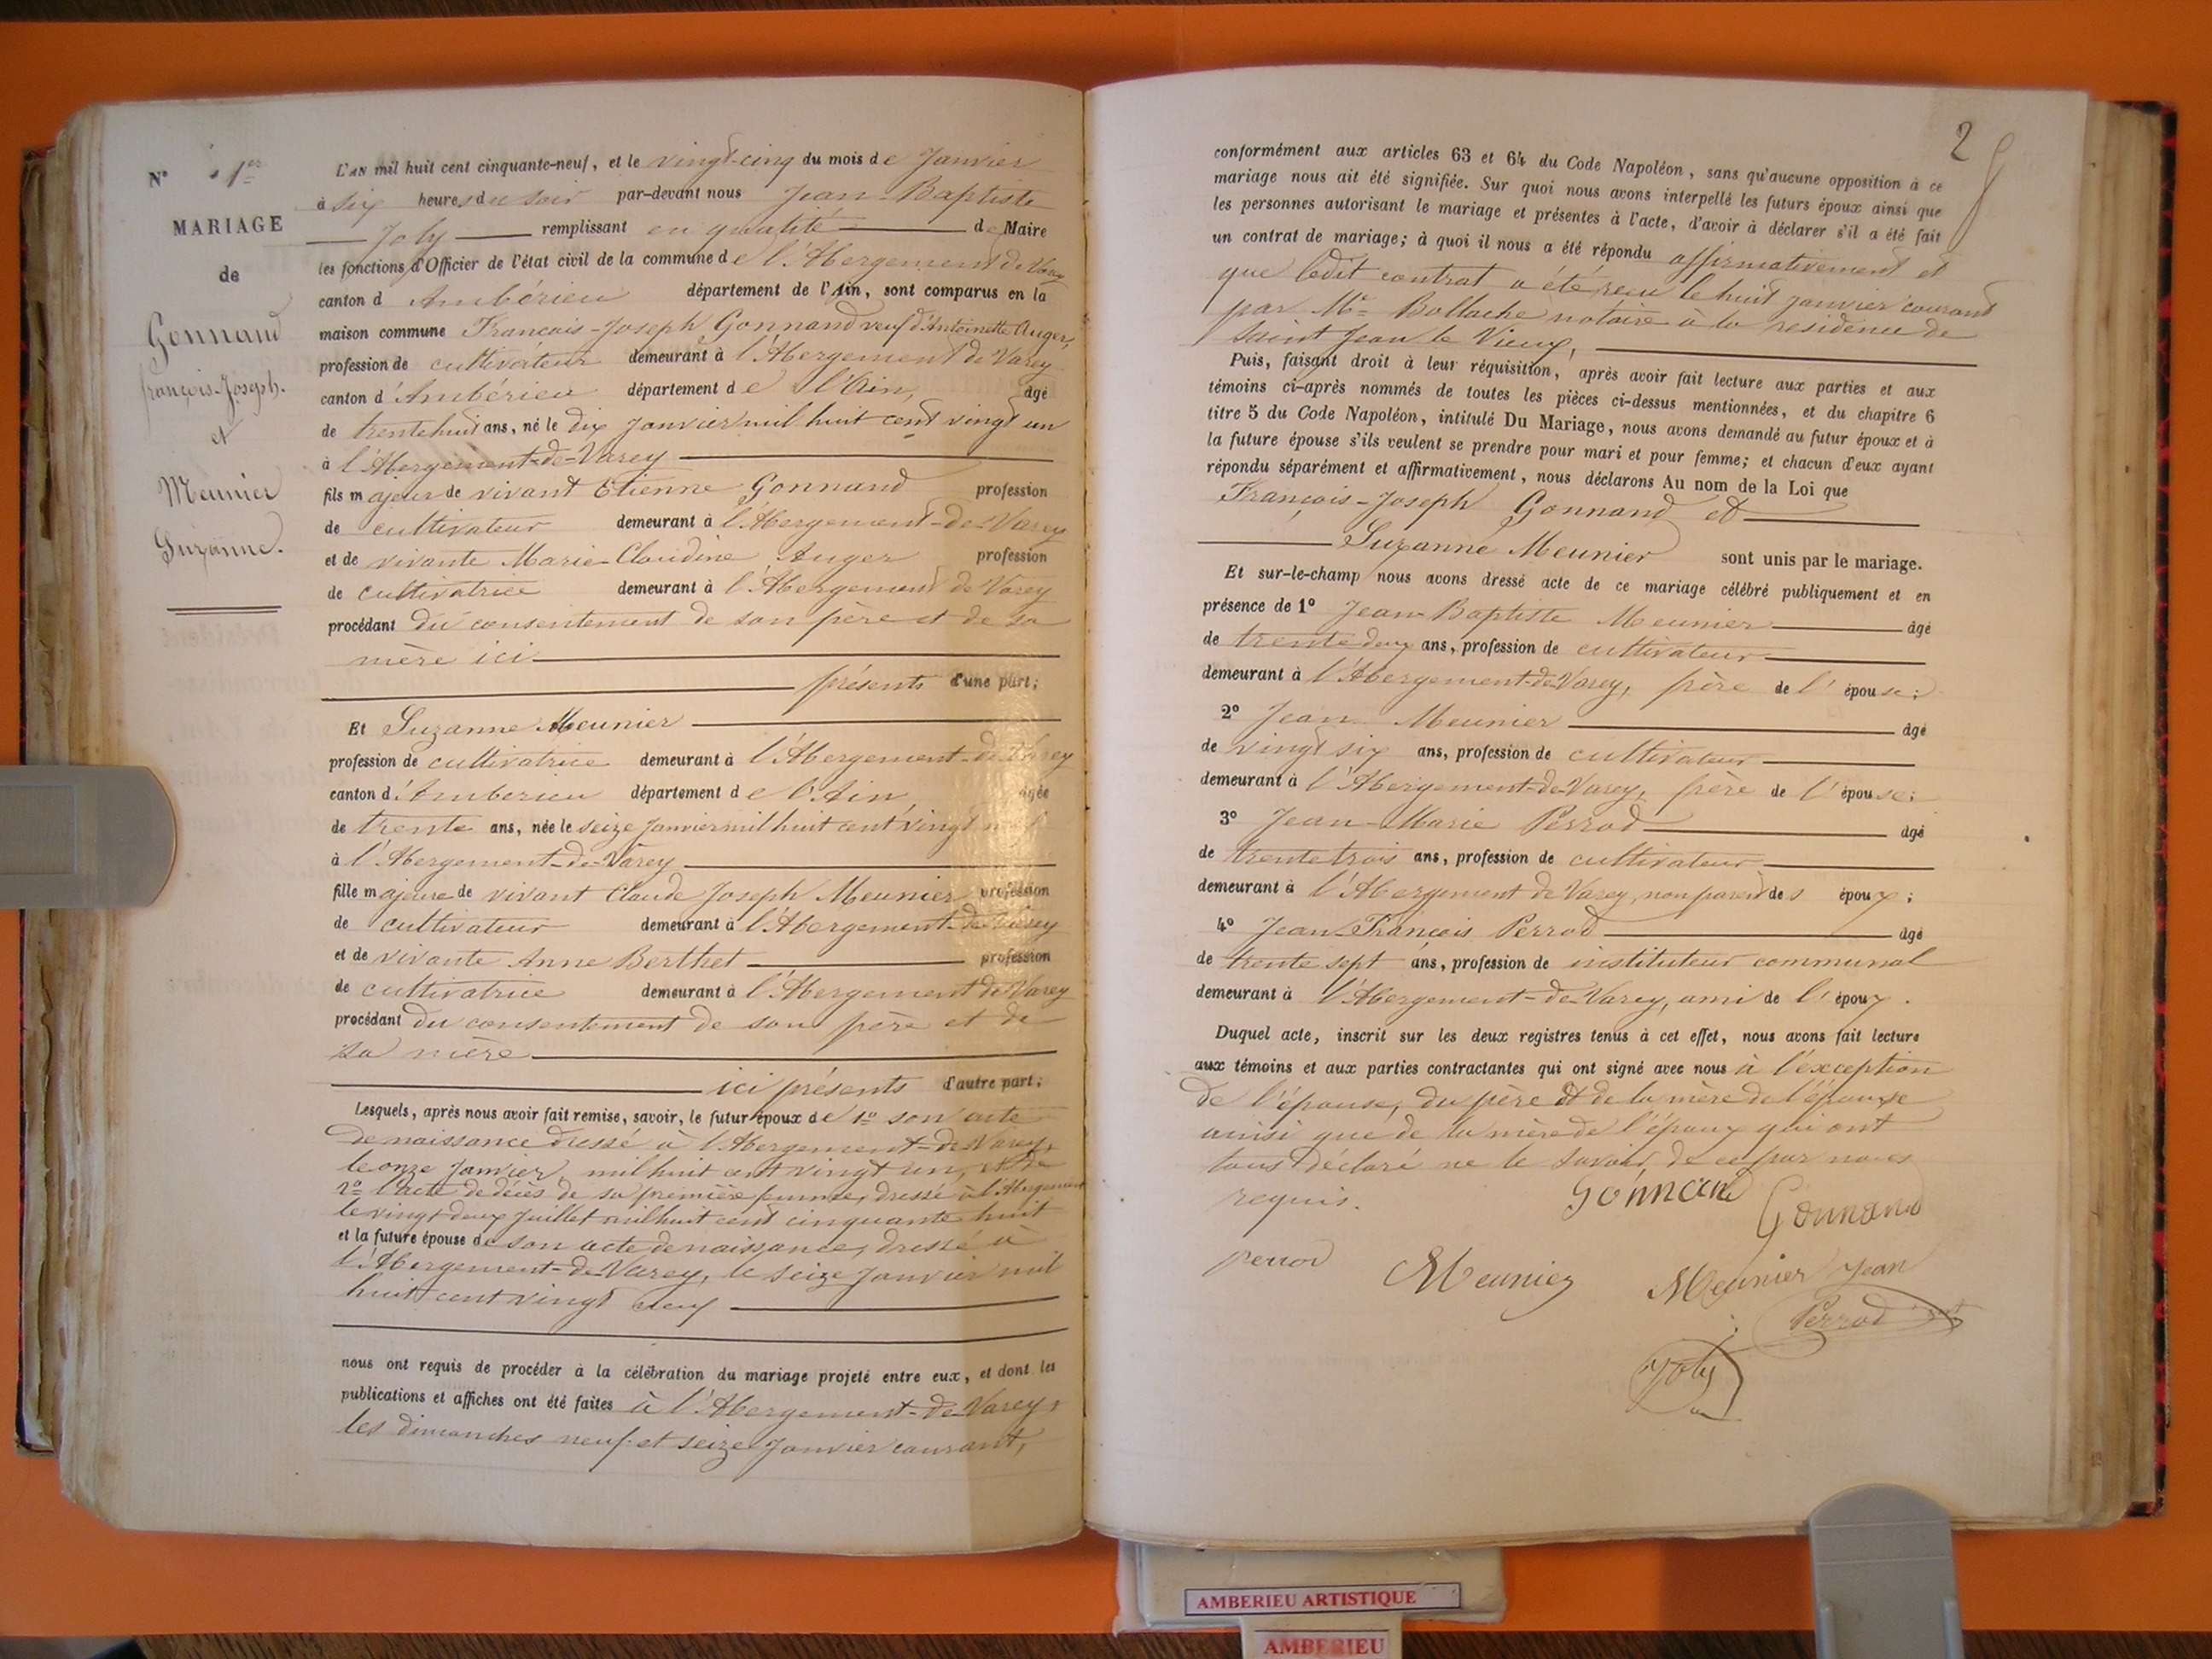 N° 1er
MARIAGE
de
Gonnand
françois-Joseph.
et
Meunier
Suzanne.
L'AN mil huit cent cinquante-neuf, et le vingt-cinq du mois de Janvier
à six heures du soir par-devant nous Jean-Baptiste
Joly remplissant en qualité de Maire
les fonctions d'Officier de l'état civil de la commune de l'Abergement de Varey
canton d'Ambérieu département de l'Ain, sont comparus en la
maison commune François-Joseph Gonnand veuf d'Antoinette Auger,
profession de cultivateur demeurant à l'Abergement de Varey
canton d'Ambérieu département de l'Ain, âgé
de trente huit ans, né le dix Janvier mil huit cent vingt un
à l'Abergement-de-Varey
fils majeur de vivant Etienne Gonnand profession
de cultivateur demeurant à l'Abergement-de-Varey
et de vivante Marie-Claudine Auger profession
de cultivatrice demeurant à l'Abergement de Varey
procédant du consentement de son père et de sa
mère ici
présents d'une part;
Et Suzanne Meunier
profession de cultivatrice demeurant à l'Abergement-de-Varey
canton d'Amberieu département de l'Ain, âgée
de trente ans, née le seize Janvier mil huit cent vingt neuf
à l'Abergement-de-Varey
fille majeure de vivant Claude Joseph Meunier profession
de cultivateur demeurant à l'Abergement-de-Varey
et de vivante Anne Berthet profession
de cultivatrice demeurant à l'Abergement de Varey
procédant du consentement de son père et de
sa mère
ici présents d'autre part;
Lesquels, après nous avoir fait remise, savoir, le futur époux de 1° son acte
de naissance dressé à l'Abergement-de-Varey,
le onze Janvier mil huit cent vingt un, et de
2° l'acte de décès de sa première femme, dressé à l'Abergement
le vingt deux Juillet mil huit cent cinquante huit
et la future épouse de son acte de naissance, dressé à
l'Abergement-de-Varey, le seize Janvier mil
huit cent vingt neuf
nous ont requis de procéder à la célébration du mariage projeté entre eux, et dont les
publications et affiches ont été faites à l'Abergement-de-Varey,
les dimanches neuf et seize Janvier courant,
2
conformément aux articles 63 et 64 du Code Napoléon, sans qu'aucune opposition à ce
mariage nous ait été signifiée. Sur quoi nous avons interpellé les futurs époux ainsi que
les personnes autorisant le mariage et présentes à l'acte, d'avoir à déclarer s'il a été fait
un contrat de mariage; à quoi il nous a été répondu affirmativement et
que ledit contrat a été reçu le huit Janvier courant
par Me Bollache notaire à la residence de
Saint Jean le Vieux,
Puis, faisant droit à leur réquisition, après avoir fait lecture aux parties et aux
témoins ci-après nommés de toutes les pièces ci-dessus mentionnées, et du chapitre 6
titre 5 du Code Napoléon, intitulé Du Mariage, nous avons demandé au futur époux et à
la future épouse s'ils veulent se prendre pour mari et pour femme; et chacun d'eux ayant
répondu séparément et affirmativement, nous déclarons Au nom de la Loi que
François-Joseph Gonnand et
Suzanne Meunier sont unis par le mariage.
Et sur-le-champ nous avons dressé acte de ce mariage célébré publiquement et en
présence de 1° Jean-Baptiste Meunier âgé
de trente deux ans, profession de cultivateur
demeurant à l'Abergement-de-Varey, frère de l'épouse;
2° Jean Meunier âgé
de vingt six ans, profession de cultivateur
demeurant à l'Abergement-de-Varey, frère de l'épouse;
3° Jean-Marie Perrod âgé
de trente trois ans, profession de cultivateur
demeurant à l'Abergement de Varey, non parent des époux;
4° Jean-François Perrod âgé
de trente sept ans, profession de instituteur communal
demeurant à l'Abergement-de-Varey, ami de l'époux.
Duquel acte, inscrit sur les deux registres tenus à cet effet, nous avons fait lecture
aux témoins et aux parties contractantes qui ont signé avec nous à l'exception
de l'épouse, du père et de la mère de l'épouse
ainsi que de la mère de l'époux qui ont
tous déclaré ne le savoir, de ce par nous
requis. Gonnand Gonnand
perrod Meunier Meunier Jean
Perrod
Joly
AMBERIEU ARTISTIQUE
AMBERIEU